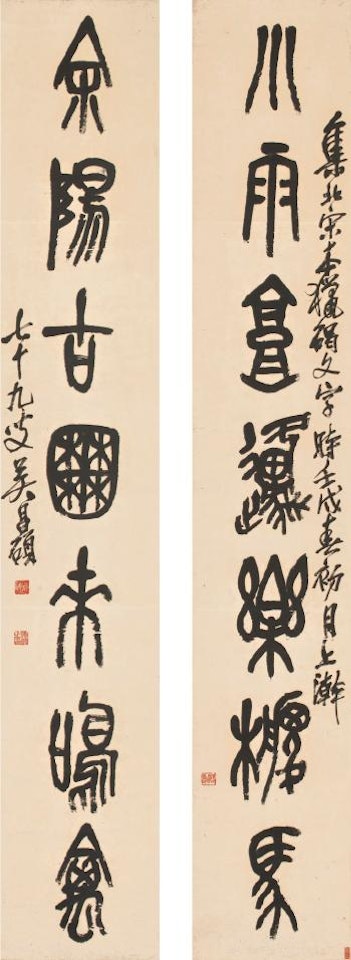 小雨高邍樂馬
集北宋本獵碣文字時壬戌春初月上澣
余陽古囿來鳴禽
七十九叟吴昌碩